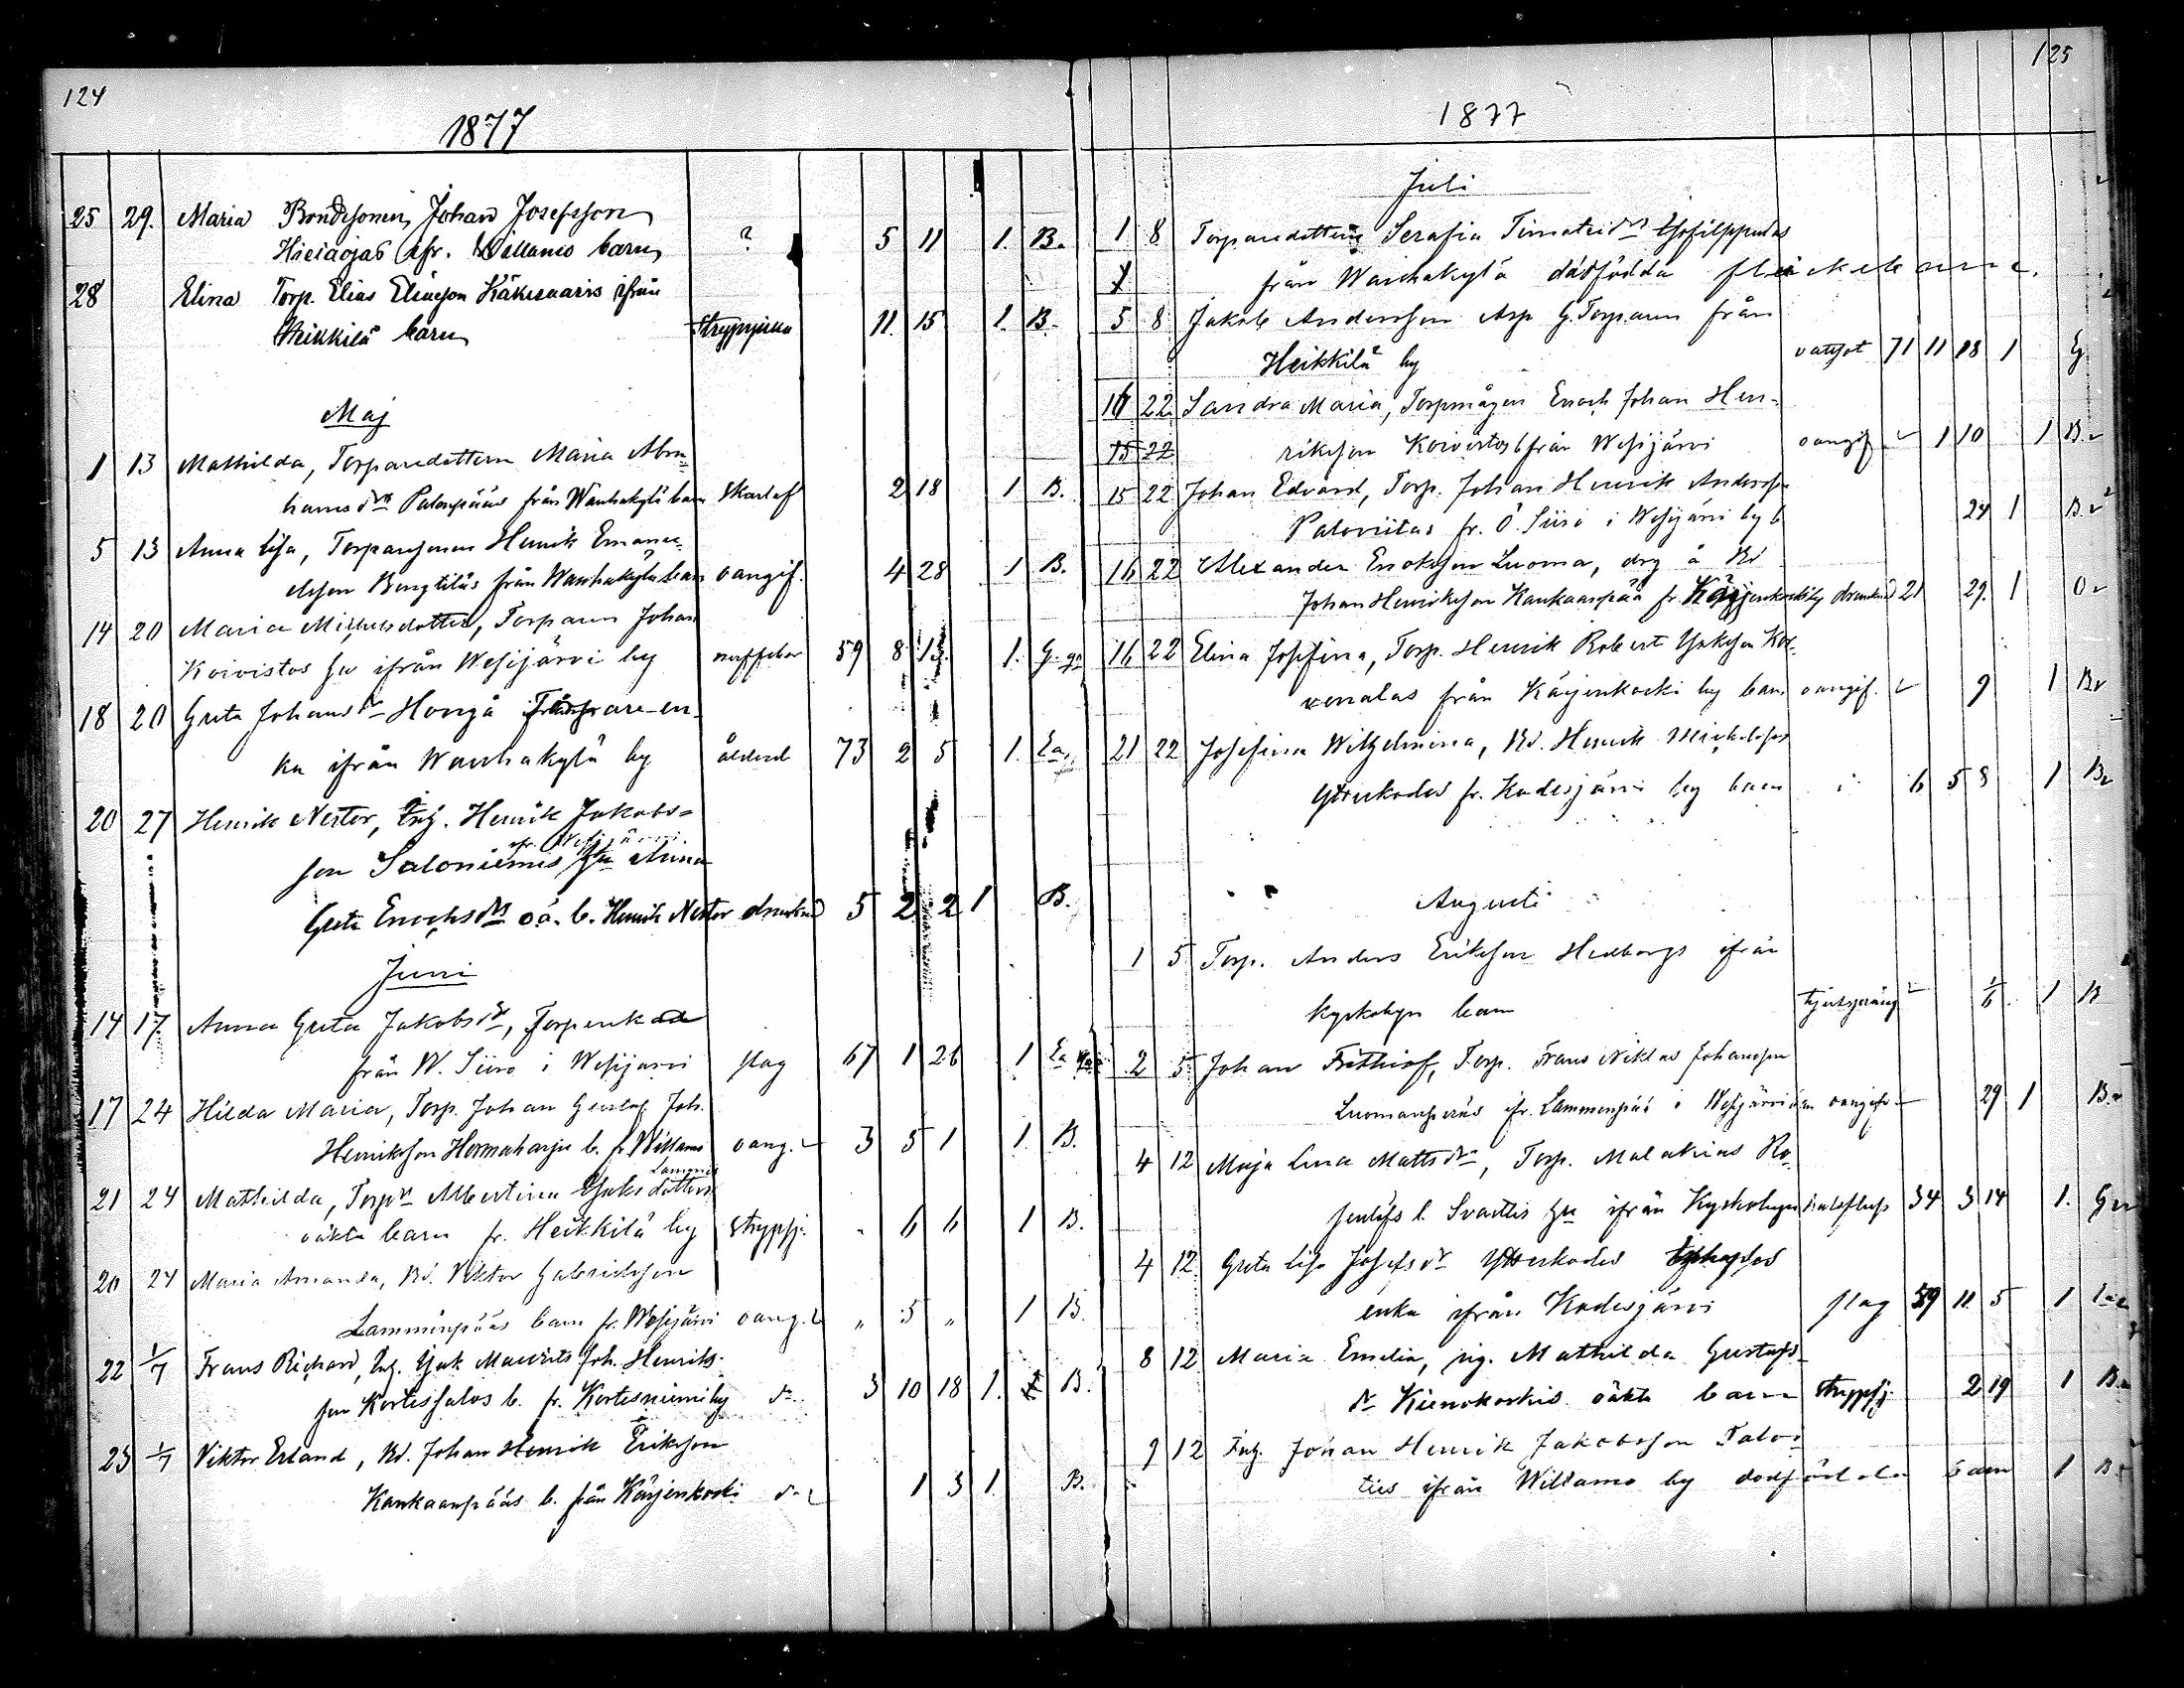 124
1877
25 29. Maria Bondesonen Johan Josefsson ?
Hieiaojas ifr. Willamo barn 5 11 1. B.
28 Elina Torp. Elias Eliasson Käkenaaris ifrån
Heikkilä barn Strypsjuka 11. 15 1. B.
Maj
1 13 Mathilda, Torparedottern Maria Abra-
hamsdr Palonpääs från Wanhakylä barn Skarlaf 2 18 1 B.
5 13 Anna Lisa, Torparesonen Henrik Emanu-
elsson Bengtiläs från Wanhakylä barn oangif. 4 28 1 B.
14 20 Maria Michelsdotter, Torparen Johan
Koivistos hu ifrån Wesijärvi by 59 8 13. 1. G.
18 20 Greta Johansdr Hongå Torpare-en-
ka ifrån Wanhakylä by ålderd 73 2 5 1. Ea.
20 27 Henrik Nestor, Inh. Henrik Jakobs-
ifr. Wesijärvi
son Saloniemis hu Anna
Greta Enochsdrs oä. b. Henrik Nestor drunknad 5 2 2 1 B.
Juni
14 17. Anna Greta Jakobsdr, Torpenka
från W. Siiro i Wesijärvi slag 67 1 26 1 Ea
17 24 Hilda Maria, Torp. Johan Gustaf Joh.
Henriksson Hormaharju b. fr. Willamo oang. 3 5 1 1. B.
Lammi
21 24 Mathilda, Torpdr Albertina Isaksdotters
oäkta barn fr. Heikkilä by Strypsj. 6 6 1 B.
20 24 Maria Amanda, Bd. Viktor Gabrielsson
Lamminpääs barn fr. Wesijärvi oang. " 5 " 1 B.
22 1/7 Frans Richard, Inh. Isak Maurits Joh. Henriks-
son Kortessalos b. fr. Kortesniemi by do 3 10 18 1. B.
23 1/7 Viktor Erland, Bd. Johan Henrik Eriksson
Kankaanpääs b. från Kärjenkoski do 1 3 1. B.
125
1877
Juli
1 8 Torparedottern Serafia Timoteidrs
från Wanhakylä dödfödda flickebarn.
5 8 Jakob Andersson Asp G. Torparen från
Heikkilä by vattsot 71 11 18 1 G
16 22 Sandra Maria, Torpmågen Enoch Johan Hen-
15 22 riksson Koivistos b från Wesijärvi oangif 1 10 1 B
15 22 Johan Edvard, Torp. Johan Henrik Andersson
Paloviitas fr. Ö. Siiro i Wesijärvi by b 24 1 B.
16 22 Alexander Enoksson Luoma, drg å Bd
Johan Henriksson Kankaanpää fr. Kärjenkoski by drunknad 21 29. 1 O
16 22 Elina Josefina, Torp. Henrik Robert Isaksson Kor-
venalas från Kärjenkoski by barn oangif. 9 1 B
21 22 Josefina Wilhelmina, Bd. Henrik Michelsson
Ytterkodes fr. Kodesjärvi by barn 6 5 8 1 B
Augusti
1 5 Torp. Anders Eriksson Hedborgs ifrån
Kyrkobyn barn 1/6. 1 B
2 5 Johan Frithiof, Torp. Frans Niklas Johansson
Luomanperäs ifr. Lamminpää i Wesijärvi barn oangif 29 1 B.
4 12 Maja Lena Mattsdr, Torp. Malakias Ro-
senlöfs l. Svartis hu ifrån Kyrkobyn 34 3 14 1. G
4 12 Greta Lisa Josefsdr Ytterkodes
enka ifrån Kodesjärvi slag 59 11. 5 1
8 12 Maria Emelia, pig. Mathilda Gustafs-
dr Kienokoskis oäkta barn strypsj. 2 19 1 B.
9 12 Inh. Johan Henrik Jakobsson Talo-
ties ifrån Willamo by dödfödda barn 1 B